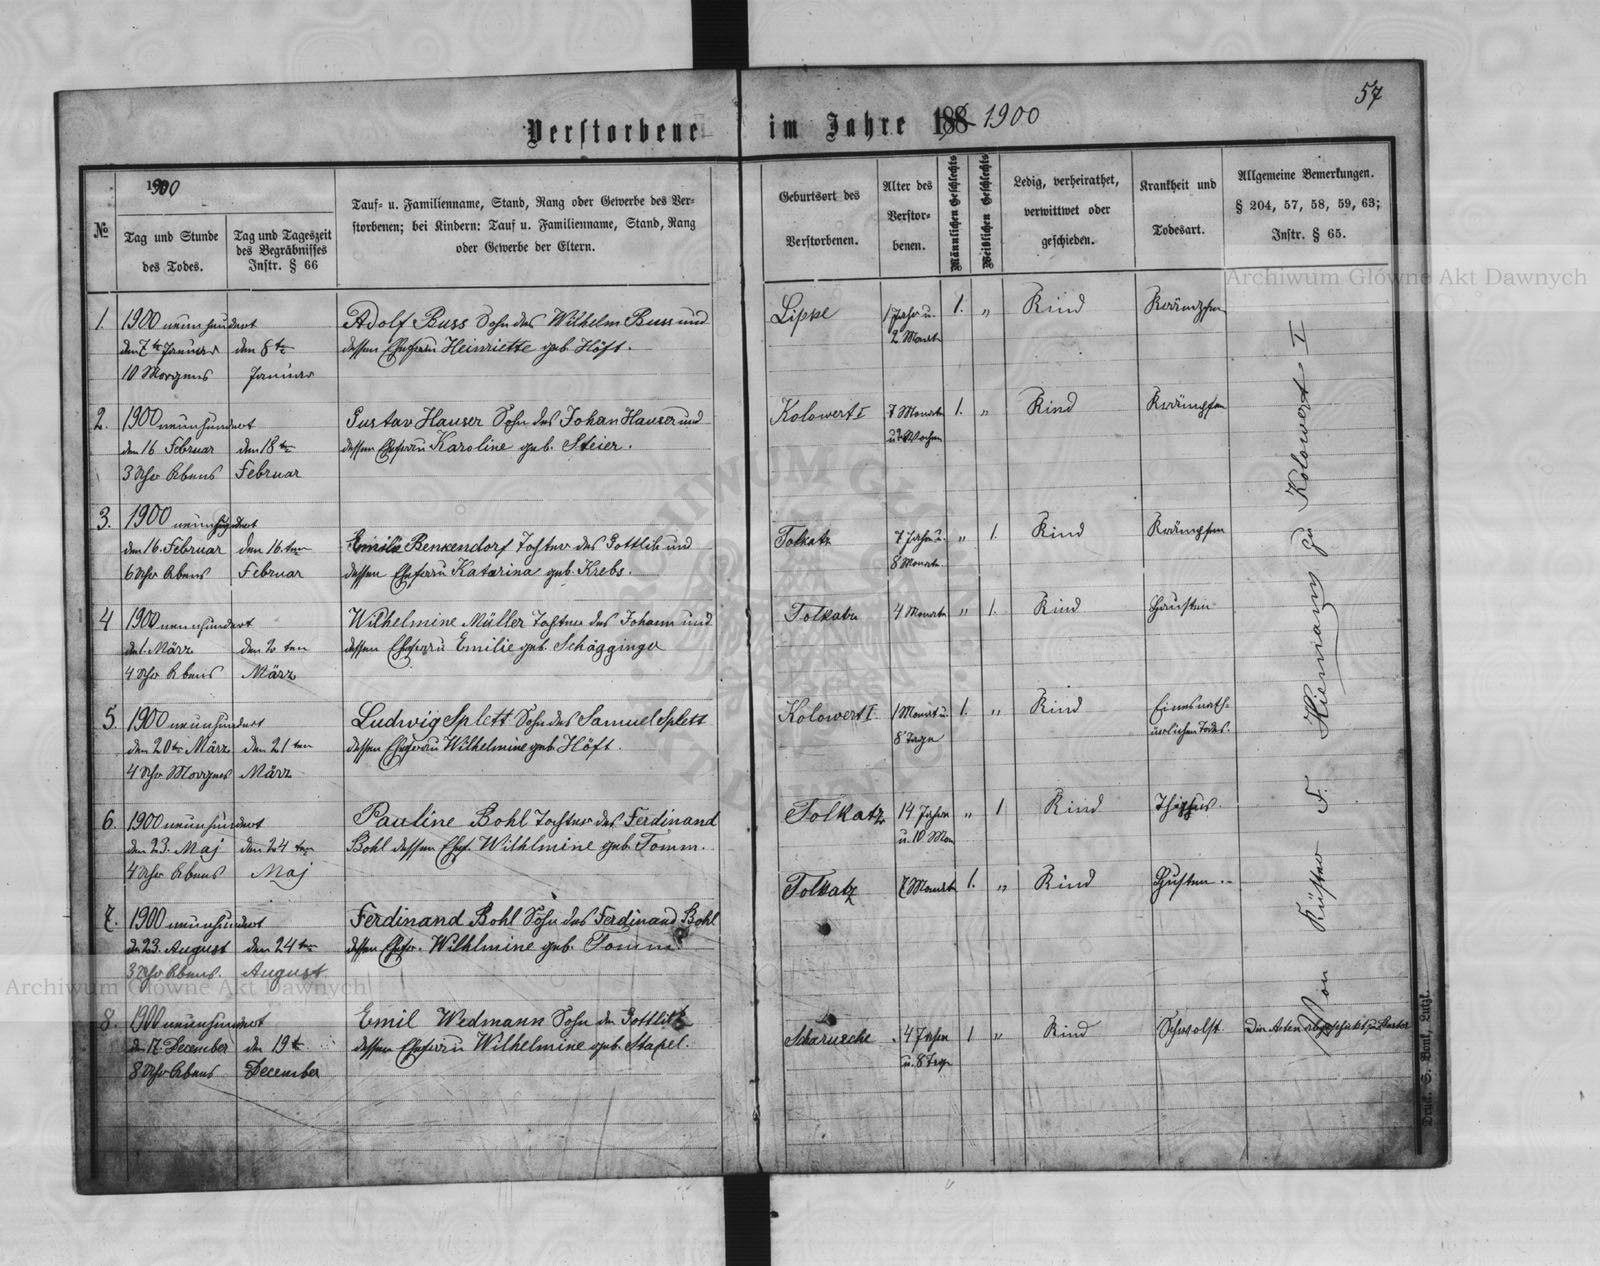 57
Verstorbene im Jahre 188 1900
1900
№
Tag und Stunde
des Todes.
Tag und Tageszeit
des Begräbnisses
Instr. § 66
Tauf- u. Familienname, Stand, Rang oder Gewerbe des Ver-
storbenen; bei Kindern: Tauf u. Familienname, Stand, Rang
oder Gewerbe der Eltern.
Geburtsort des
Verstorbenen.
Alter des
Verstor-
benen.
Männlichen Geschlechts
Weiblichen Geschlechts
Ledig, verheirathet,
verwittwet oder
geschieden.
Krankheit und
Todesart.
Allgemeine Bemerkungen.
§ 204, 57, 58, 59, 63;
Instr. § 65.
Archiwum Główne Akt Dawnych
1. 1900 neunhundert Adolf Buss Sohn des Wilhelm Buss und Lipke 1 Jahr u. 1. „ Kind Krämpfen
den 7te Januar den 8te dessen Ehefrau Heinriette geb. Höft. 2 Monat
10 Morgens Januar
2. 1900 neunhundert Gustav Hauser Sohn des Johan Hauser und Kolowert I 7 Monate 1. „ Kind Krämpfen
den 16 Februar den 18te dessen Ehefrau Karoline geb. Steier. Wochen
3 Uhr Abens Februar
3. 1900 neunhundert
den 16. Februar den 16.ten Emilie Benkendorf Tochter des Gottlib und Tolkatz 7 Jahr u. „ 1. Kind Krämpfen
6 Uhr Abens Februar dessen Ehefrau Katarina geb. Krebs. 8 Monate
4 1900 neunhundert Wilhelmine Müller Tochter des Johann und 4 Monate „ 1. Kind
den 1. März den 2ten dessen Ehefrau Emilie geb.
4 Uhr Abens März
5. 1900 neunhundert Ludwig Splett Sohn des Samuel Splett Kolowert I. 1 Monat u. 1. „ Kind Eines nath-
den 20te März den 21ten dessen Ehefrau Wilhelmine geb. Höft. 8 Tage urlichen Todes.
4 Uhr Morgens März
6. 1900 neunhundert Pauline Bohl Tochter des Ferdinand Tolkatz 14 Jahre „ 1 Kind
den 23. Maj den 24ten Bohl dessen Ehef. Wilhlmine geb. Tomm. u. 10 Mon
4 Uhr Abens Maj
7. 1900 neunhundert Ferdinand Bohl Sohn des Ferdinand Bohl Tolkatz 7 Monat 1. „ Kind Husten.
den 23. August den 24ten dessen Ehefr. Wilhlmine geb. Tomm
3 Uhr Abens. August
Archiwum Główne Akt Dawnych
8. 1900 neunhundert Emil Wedmann Sohn des Gottlieb 4 Jahre 1 „ Kind
den 17. December den 19te dessen Ehefrau Wilhelmine geb. Stapel. u. 8 Tage
8 Uhr Abens December
Von Küster F. zu Kolowert I
Druck S. Bonk, Lutzk.